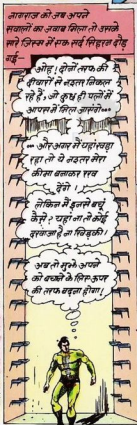 नागराज को जब अपने
सवालों का जवाब मिला तो उसके
सारे जिस्म में एक सर्द सिहरन दौड़
गई-
ओह! दोनों तरफ की
दीवारों से नश्तर निकल
रहे हैं, जो कुछ ही पलों में
आपस में मिल जाएंगे...
...और अगर मैं यहां खड़ा
रहा तो ये नश्तर मेरा
कीमा बनाकर रख
देंगे।
लेकिन मैं इनसे बचूं
कैसे? यहां ना तो कोई
दरवाजा है ना खिड़की।
अब तो मुझे अपने
को बचाने के लिए ऊपर
की तरफ बढ़ना होगा!